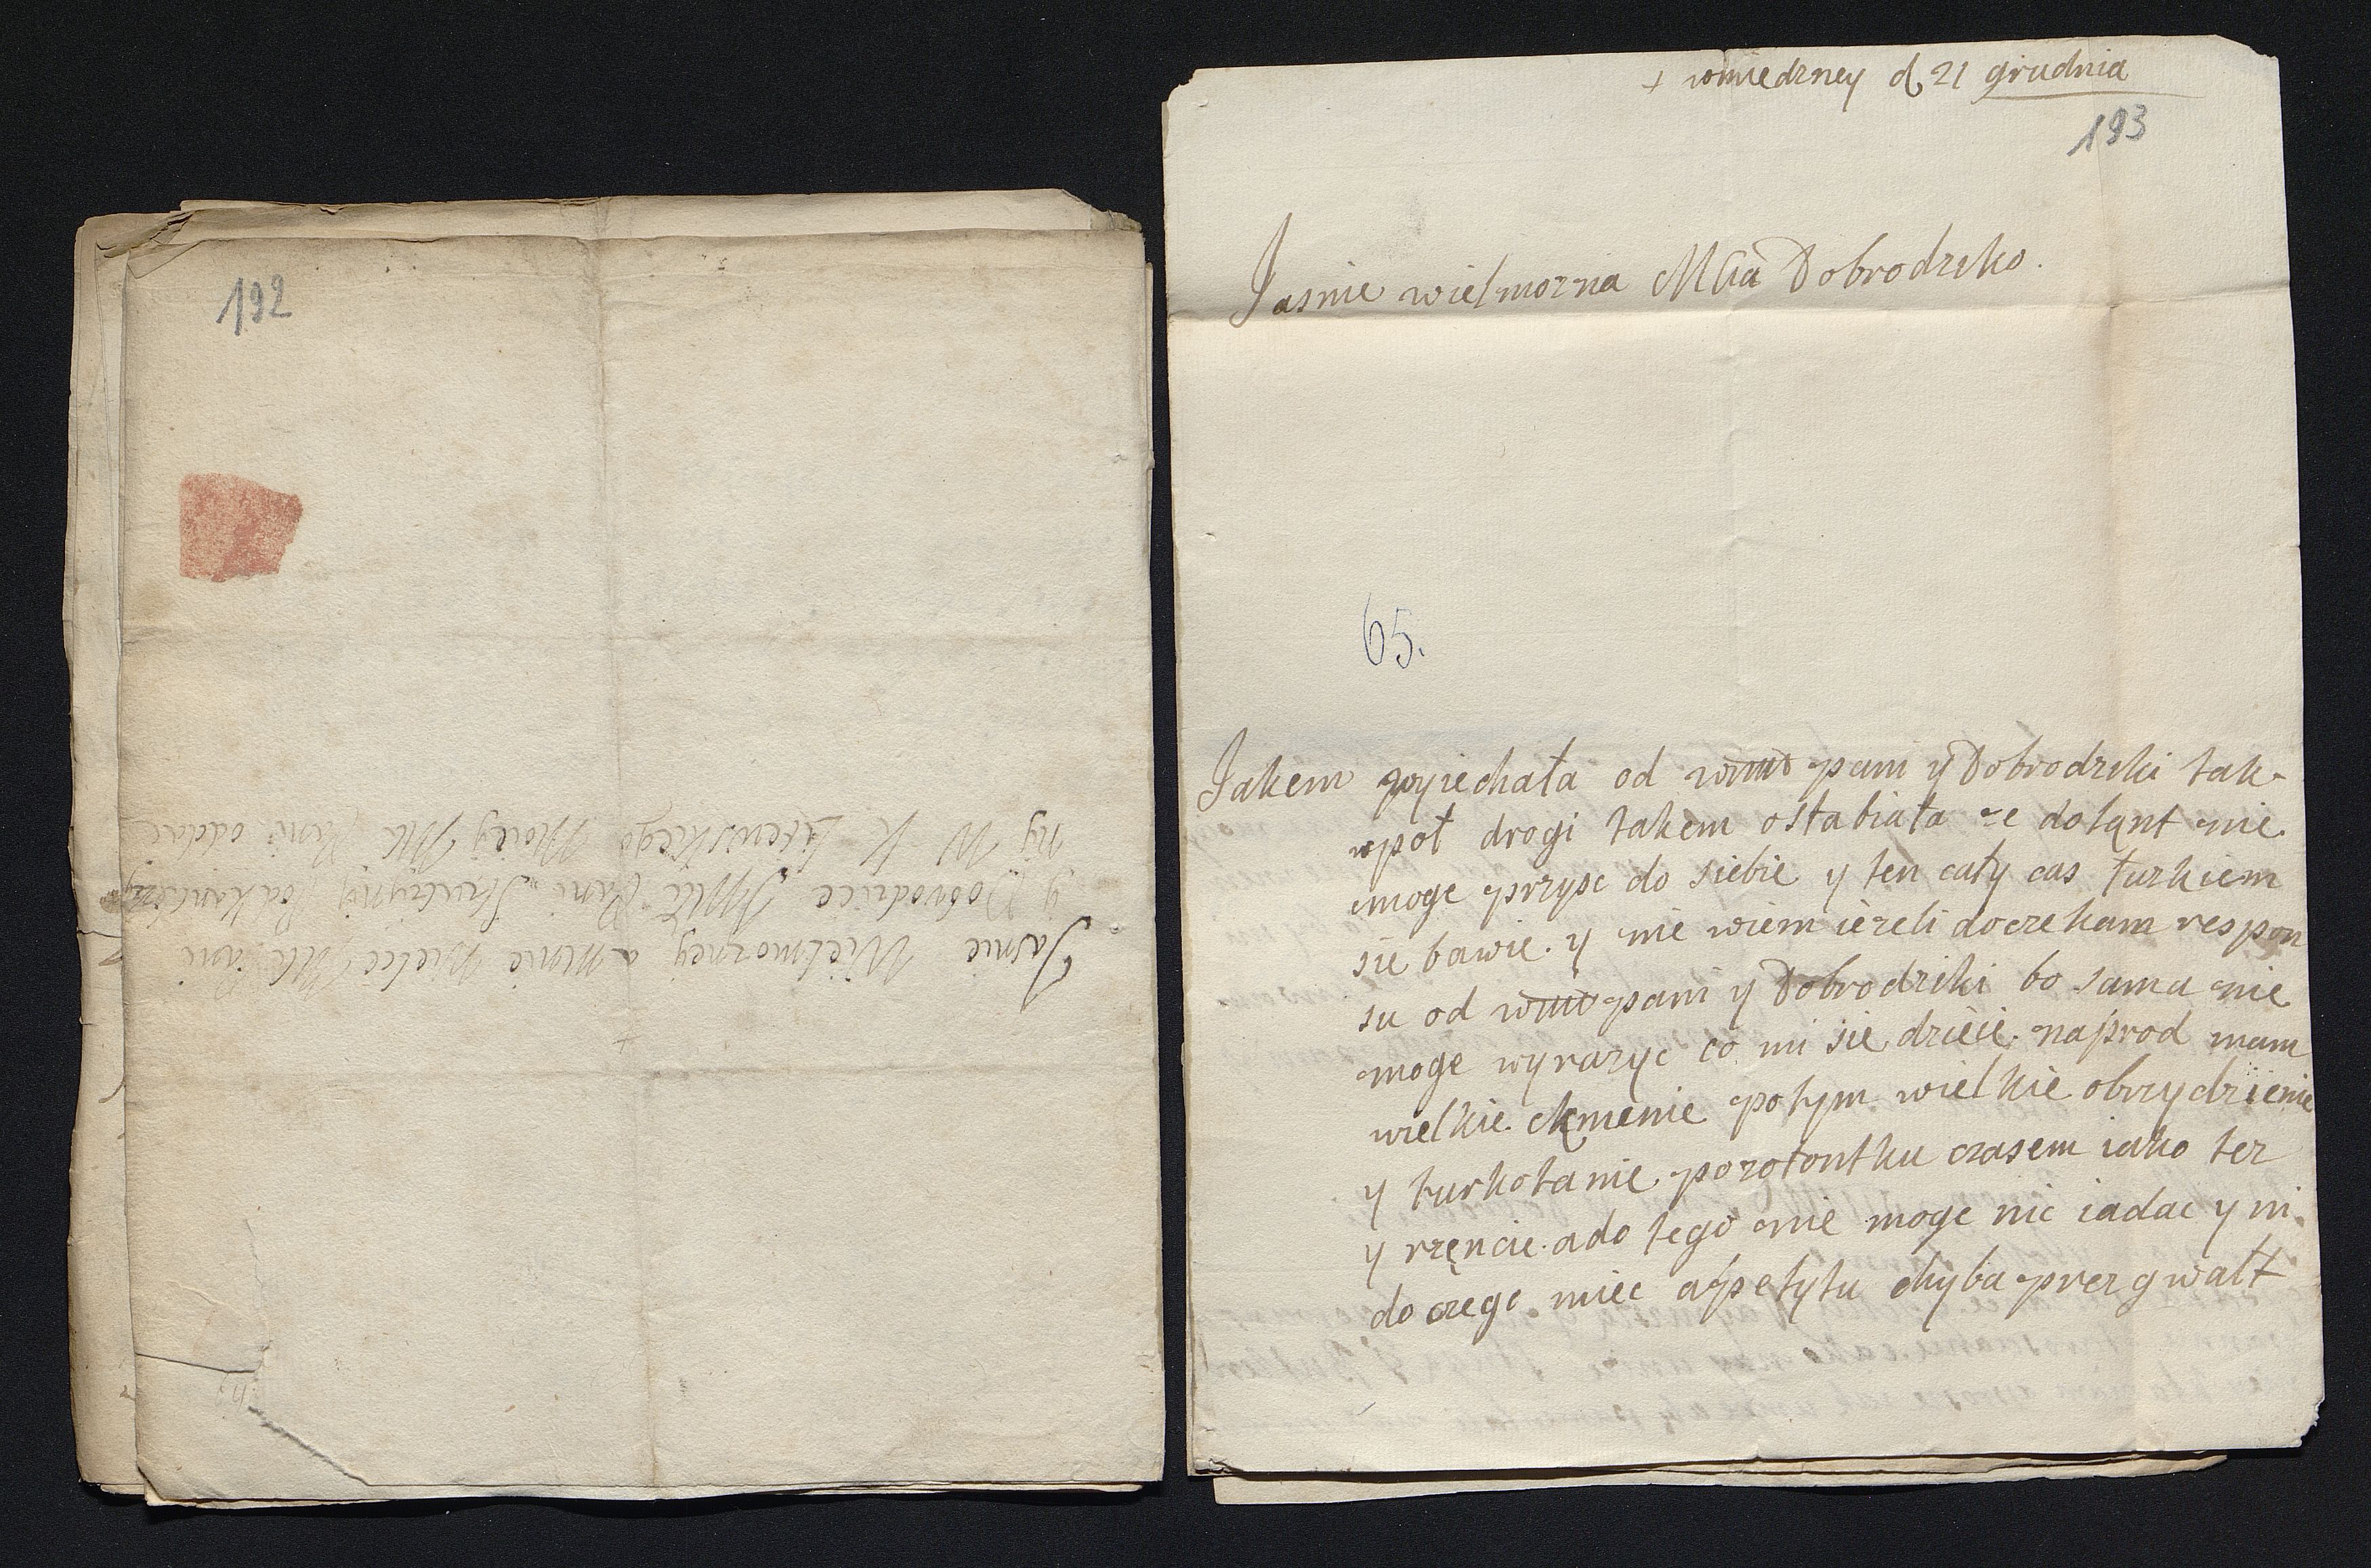 192
Jasnie Wielmozney a mnie Wielce Mć Pani
y Dobrodice JMć Pani Podkanclerzy
ny W X Litewskiego Moiey Mć Pani oddac
+ wmiedzney d 21 grudnia
193
Jasnie wielmozna MCia Dobrodziko.
65.
Jakem wyiechała od wmw pani y Dobrodziki tak
wpoł drogi takem osłabiała ze dotąnt nie
moge przysc do siebie y ten cały cas łuzkiem
sie bawie. y nie wiem iezeli doczekam respon
su od wmw pani y Dobrodziki bo sama nie
moge wyrazyc co mi sie dzieie. naprod mam
wielkie ckmienie potym wielkie obrzydzienie
y turkotanie pozotontku czasem iako tez
y rzęncie. ado tego nie moge nic iadac y ni
do czego miec apetytu chyba przez gwałt